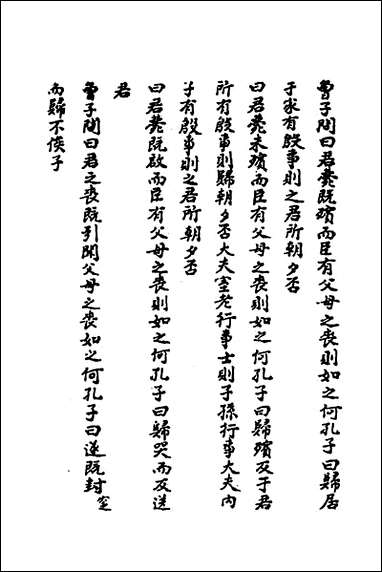 曾子問曰君薨既殯而臣有父母之喪則如之何孔子曰歸居
于家有殷事則之君所朝夕否
曰君薨未殯而臣有父母之喪則如之何孔子曰歸殯反于君
所有殷事則歸朝夕否大夫室老行事士則子孫行事大夫內
子有殷事則之君所朝夕否
曰君薨既啟而臣有父母之喪則如之何孔子曰歸哭而反送
君
曾子問曰君之喪既引聞父母之喪如之何孔子曰遂既封窆
而歸不俟子